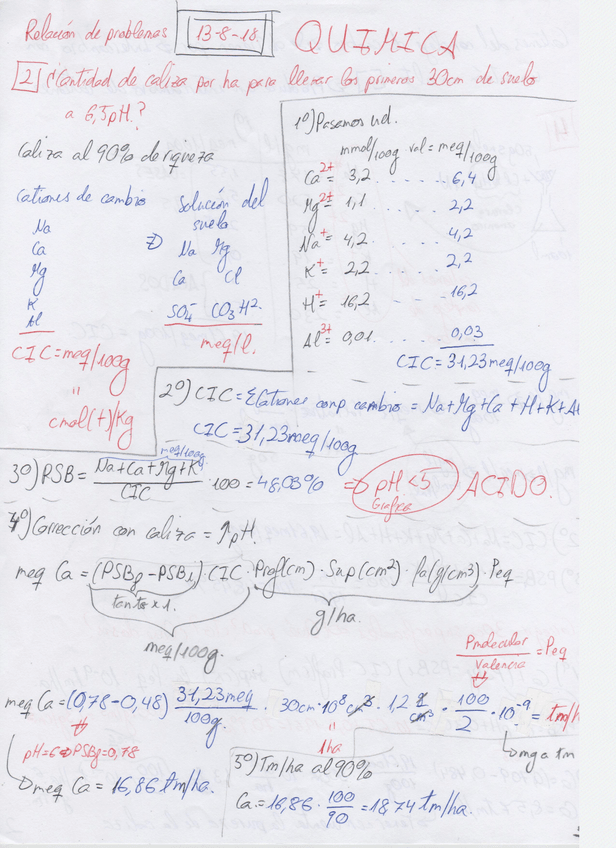 Relación de problemas
13-8-18
QUIMICA
2 ¿Cantidad de caliza por ha para llevar los primeros 30cm de suelo
a 6,5pH?
Caliza al 90% de riqueza
Cationes de cambio
Na
Ca
Mg
K
Al
CIC=meq/100g
"
cmol(+)/Kg
Solución del
suelo
Na Mg
Ca Cl
SO4= CO3H-
meq/l.
1º)Pasamos ud.
mmol/100g val = meq/100g
Ca2+= 3,2 . . . . . 6,4
Mg2+= 1,1 . . . . . 2,2
Na+= 4,2 . . . . . 4,2
K+= 2,2 . . . . . 2,2
H+= 16,2 . . . . . 16,2
Al3+= 0,01 . . . . . 0,03
CIC=31,23meq/100g
2º) CIC = Σ Cationes comp cambio = Na+Mg+Ca+H+K+Al
CIC=31,23meq/100g
meq/100g
3º) PSB= Na+Ca+Mg+K / CIC · 100 = 48,03% ⇒ pH<5 ACIDO.
Grafica
4º) Corrección con caliza = ↑pH.
meq Ca = (PSBf - PSBi) · CIC · Prof(cm) · Sup(cm²) · fa(g/cm³) · Peq
tanto x 1.
meq/100g.
g/ha.
Pmolecular / Valencia = Peq
meq Ca = (0,78-0,48) 31,23meq/100g · 30cm · 10⁸ cm² · 1,2 g/cm³ · 100/2 · 10⁻⁹ = tm/h
"
1ha
mg a tm
pH=6 ⇒ PSBf=0,78
meq Ca = 16,86 tm/ha.
5º) Tm/ha al 90%
Ca = 16,86 · 100/90 = 18,74 tm/ha.